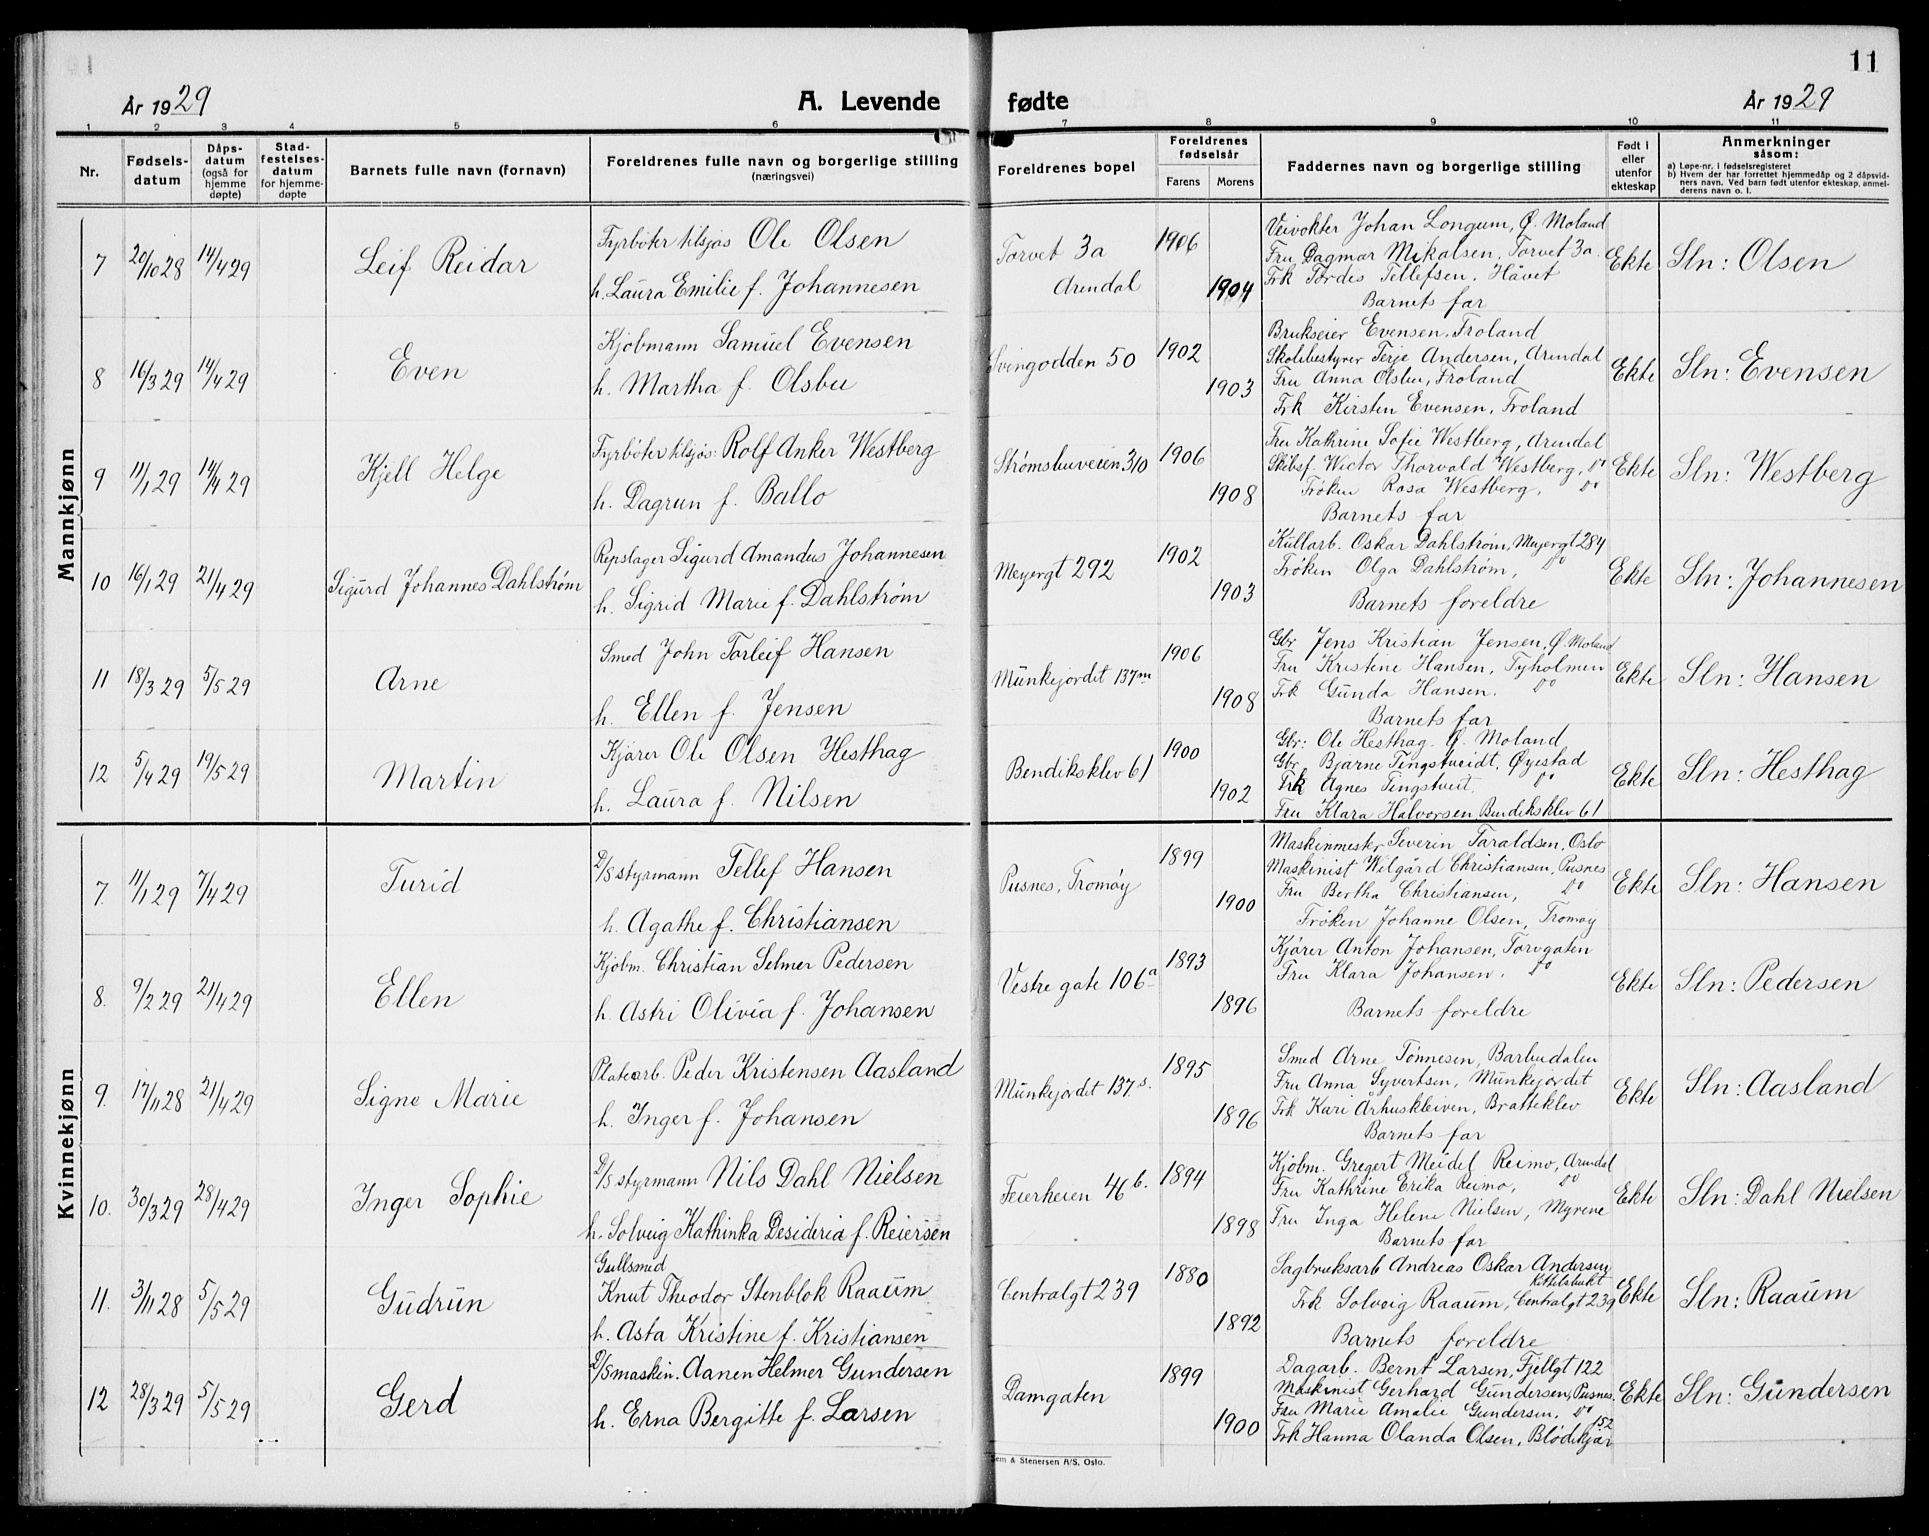 11
År 1929 A. Levende fødte År 1929
1 2 3 4 5 6 7 8 9 10 11
Nr. Fødselsdatum Dåpsdatum (også for hjemmedøpte) Stadfestelsesdatum for hjemmedøpte Barnets fulle navn (fornavn) Foreldrenes fulle navn og borgerlige stilling (næringsvei) Foreldrenes bopel Foreldrenes fødselsår Farens Morens Faddernes navn og borgerlige stilling Født i eller utenfor ekteskap Anmerkninger såsom:
a) Løpe-nr. i fødselsregisteret
b) Hvem der har forrettet hjemmedåp og 2 dåpsvidners navn. Ved barn født utenfor ekteskap, anmelderens navn o. l.
Mannkjønn
7 20/10 28 14/4 29 Leif Reidar
Fyrbøter tilsjøs Ole Olsen
h. Laura Emilie f. Johannesen
Torvet 3a
Arendal
1906
1904
Veivokter Johan Longum, Ø. Moland
Fru Dagmar Mikalsen, Torvet 3a.
Frk Tordis Tellefsen, Håvet
Barnets far
Ekte Sln: Olsen
8 16/3 29 14/4 29 Even
Kjøbmann Samuel Evensen
h. Martha f. Olsbu
Svingodden 50
1902
1903
Brukseier Evensen, Froland
Skolebestyrer Terje Andersen, Arendal
Fru Anna Olsbu, Froland
Frk Kirsten Evensen, Froland
Ekte Sln: Evensen
9 11/1 29 14/4 29 Kjell Helge
Fyrbøter tilsjøs: Rolf Anker Westberg
h. Dagrun f. Ballo
Strømsbuveien 310
1906
1908
Fru Kathrine Sofie Westberg, Arendal
Skibsf. Wictor Thorvald Westberg, Do
Frøken Rosa Westberg, Do
Barnets far
Ekte Sln: Westberg
10 16/1 29 21/4 29 Sigurd Johannes Dahlstrøm
Repslager Sigurd Amandus Johannesen
h. Sigrid Marie f. Dahlstrøm
Meyergt 292
1902
1903
Kullarb. Oskar Dahlstrøm, Meyergt 284
Frøken Olga Dahlstrøm, Do
Barnets foreldre
Ekte Sln: Johannesen
11 18/3 29 5/5 29 Arne
Smed John Torleif Hansen
h. Ellen f. Jensen
Munkejordet 137m
1906
1908
Gbr Jens Kristian Jensen, Ø. Moland
Fru Kristine Hansen, Tyholmen
Frk Gunda Hansen. Do
Barnets far
Ekte Sln: Hansen
12 5/4 29 19/5 29 Martin
Kjører Ole Olsen Hesthag
h. Laura f. Nilsen
Bendiksklev 61
1900
1902
Gbr: Ole Hesthag. Ø. Moland
Gbr Bjarne Tingstveidt, Øyestad
Frk Agnes Tingstveit. Do
Fru Klara Halvorsen Bendiksklev 61
Ekte Sln: Hesthag
Kvinnekjønn
7. 11/1 29 7/4 29 Turid
D/S styrmann Tellef Hansen
h. Agathe f. Christiansen
Pusnes, Tromøy
1899
1900
Maskinmester Severin Taraldsen, Oslo
Maskinist Wilgård Christiansen, Pusnes
Fru Bertha Christiansen, Do
Frøken Johanne Olsen, Tromøy
Ekte Sln: Hansen
8. 9/2 29 21/4 29 Ellen
Kjøbm. Christian Selmer Pedersen
h. Astri Olivia f. Johansen
Vestre gate 106a
1893
1896
Kjører Anton Johansen, Torvgaten
Fru Klara Johansen. Do
Barnets foreldre
Ekte Sln: Pedersen
9. 17/11 28 21/4 29 Signe Marie
Platearb. Peder Kristensen Aasland
h. Inger f. Johansen
Munkejordet 137s.
1895
1896
Smed Arne Tønnesen, Barbudalen
Fru Anna Syvertsen, Munkejordet
Frk Kari Århuskleiven, Bratteklev
Barnets far
Ekte Sln: Aasland
10. 30/3 29 28/4 29 Inger Sophie
D/S styrmann Nils Dahl Nielsen
h. Solveig Kathinka Desideria f. Reiersen
Feierheien 46 b.
1894
1898
Kjøbm. Gregert Meidel Reimo, Arendal
Fru Kathrine Erika Reimo, Do
Fru Inga Helene Nielsen, Myrene
Barnets far
Ekte Sln: Dahl Nielsen
11. 3/11 28 5/5 29 Gudrun
Gullsmed
Knut Theodor Stenblok Raaum
h. Asta Kristine f. Kristiansen
Centralgt 239
1880
1892
Sagbruksarb Andreas Oskar Andersen
Kittelsbukt
Frk Solveig Raaum, Centralgt 239
Barnets foreldre
Ekte Sln: Raaum
12 28/3 29 5/5 29 Gerd
D/S maskin. Aanen Helmer Gundersen
h. Erna Bergitte f. Larsen
Damgaten
1899
1900
Dagarb. Bernt Larsen, Fjellgt 122
Maskinist Gerhard Gundersen, Pusnes.
Fru Marie Amalie Gundersen, Do
Frk Hanna Olanda Olsen, Blødekjær 152
Ekte Sln: Gundersen
Sem & Stenersen A/S, Oslo.